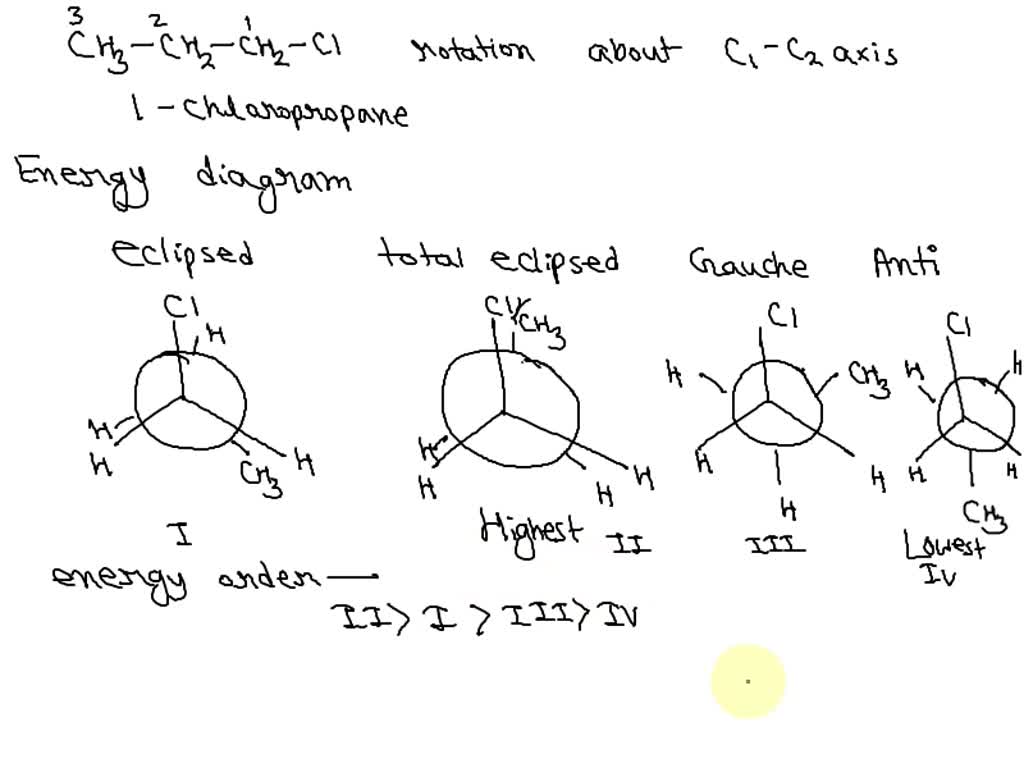 3 2 1
CH3-CH2-CH2-Cl rotation about C1-C2 axis
1-chloropropane
Energy diagram
eclipsed total eclipsed Gauche Anti
Cl H H H CH3 H
Cl CH3 H H H H
Cl H CH3 H H H
Cl H H H H CH3
I Highest II III Lowest IV
energy order —
II > I > III > IV